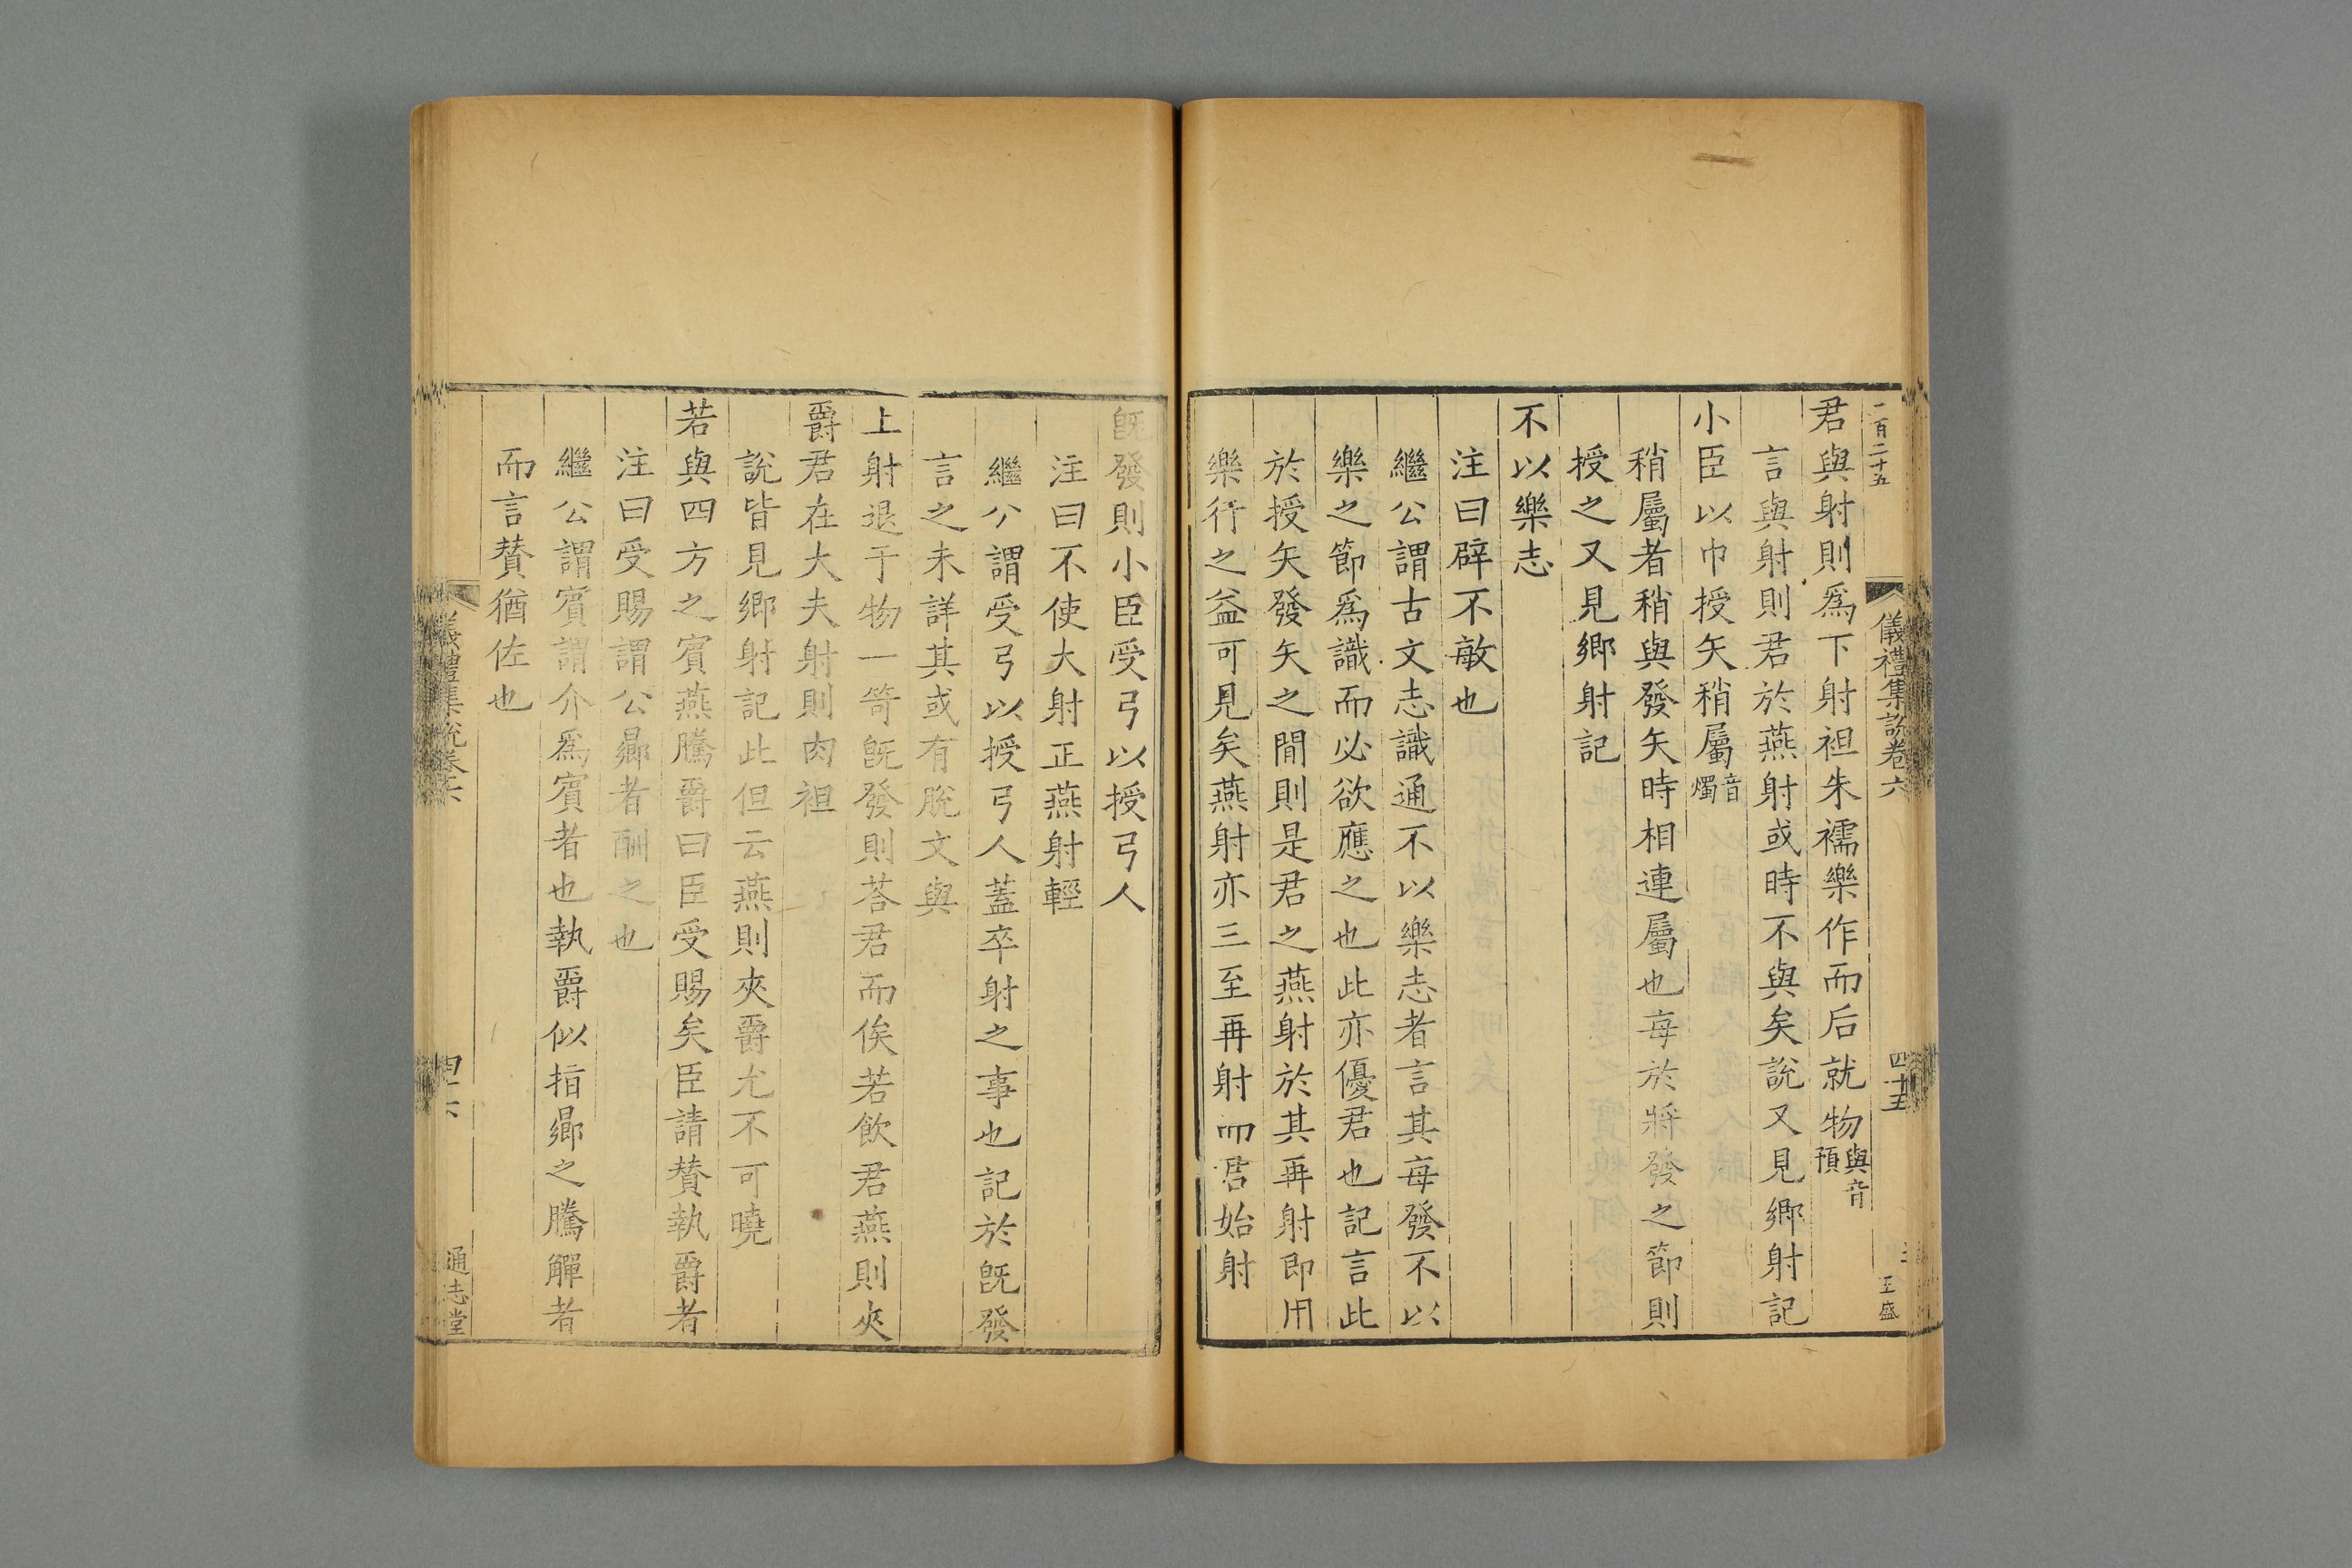 一百二十五
儀禮集說卷六
四十五
王盛
君與射則爲下射袒朱襦樂作而后就物與音預
言與射則君於燕射或時不與矣說又見鄉射記
小臣以巾授矢稍屬音燭
稍屬者稍與發矢時相連屬也每於將發之節則
授之又見鄉射記
不以樂志
注曰辟不敏也
繼公謂古文志識通不以樂志者言其每發不以
樂之節爲識而必欲應之也此亦優君也記言此
於授矢發矢之間則是君之燕射於其再射即用
樂行之益可見矣燕射亦三至再射而君始射
旣發則小臣受弓以授弓人
注曰不使大射正燕射輕
繼公謂受弓以授弓人蓋卒射之事也記於旣發
言之未詳其或有脫文與
上射退于物一笴旣發則荅君而俟若飲君燕則夾
爵君在大夫射則肉袒
說皆見鄉射記此但云燕則夾爵尤不可曉
若與四方之賓燕騰爵曰臣受賜矣臣請贊執爵者
注曰受賜謂公鄉者酬之也
繼公謂賓謂介爲賓者也執爵似指鄉之騰觶者
而言贊猶佐也
儀禮集說卷六
四十六
通志堂